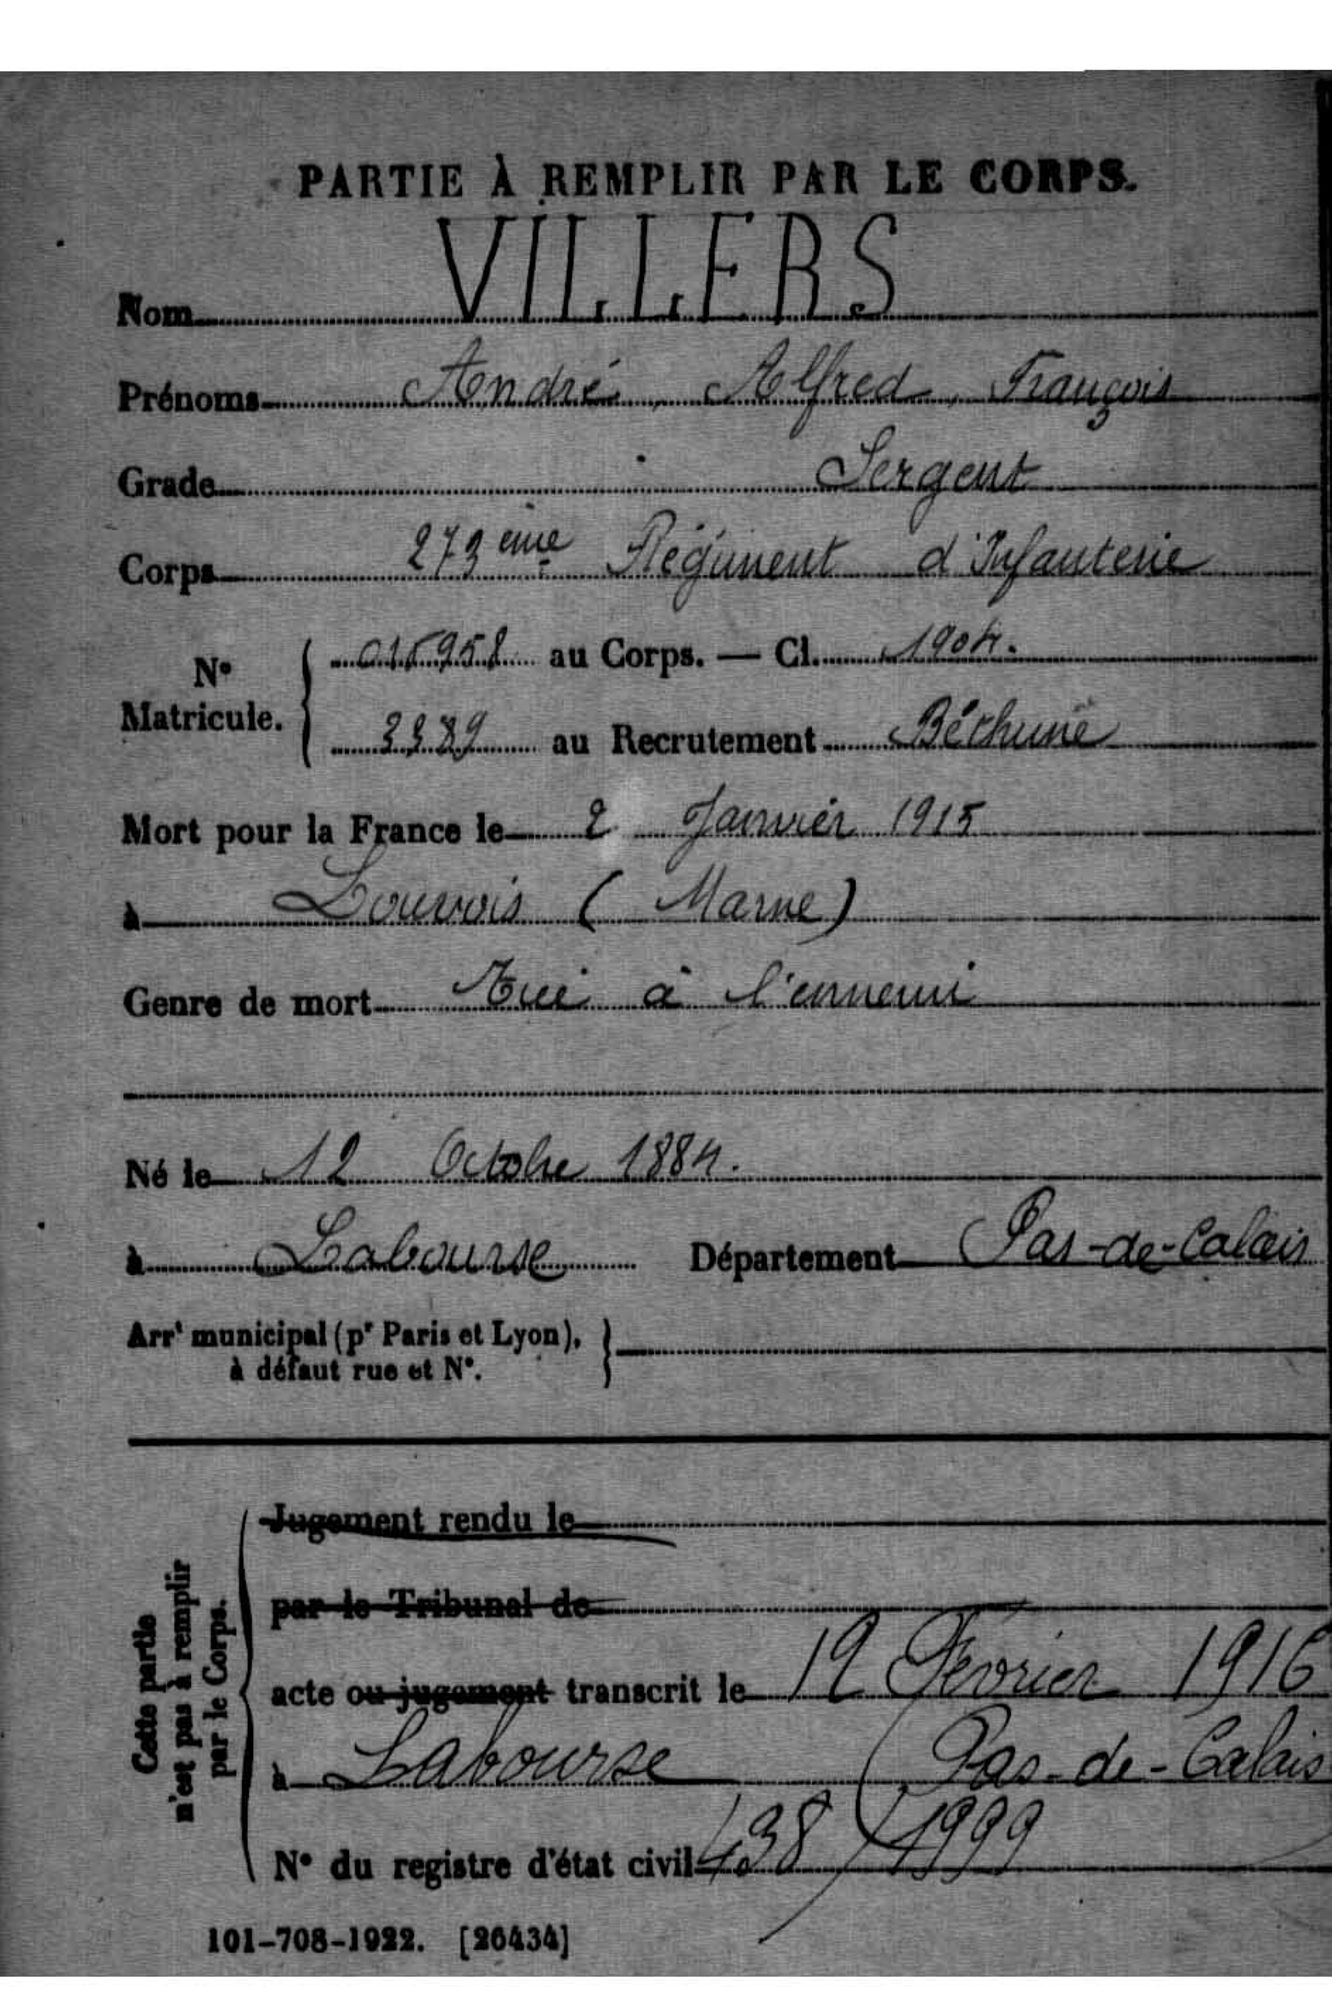 PARTIE À REMPLIR PAR LE CORPS.
Nom VILLERS
Prénoms André, Alfred, François
Grade Sergent
Corps 273 eme Régiment d'Infanterie
N° Matricule. 015958 au Corps. — Cl. 1904.
3389 au Recrutement Béthune
Mort pour la France le 2 Janvier 1915
à Louvois (Marne)
Genre de mort Tué à l'ennemi
Né le 12 Octobre 1884.
à Labourse Département Pas-de-Calais
Arrt municipal (pr Paris et Lyon),
à défaut rue et N°.
Cette partie
n'est pas à remplir
par le Corps.
Jugement rendu le
par le Tribunal de
acte ou jugement transcrit le 12 Février 1916
à Labourse (Pas-de-Calais
N° du registre d'état civil 438/1999
101-708-1922. [26434]